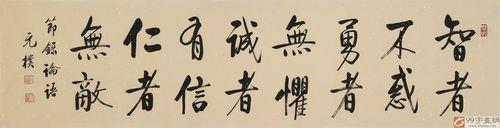 智者
不惑
勇者
無懼
誠者
有信
仁者
無敵
節錄論語
元樸
99字画网